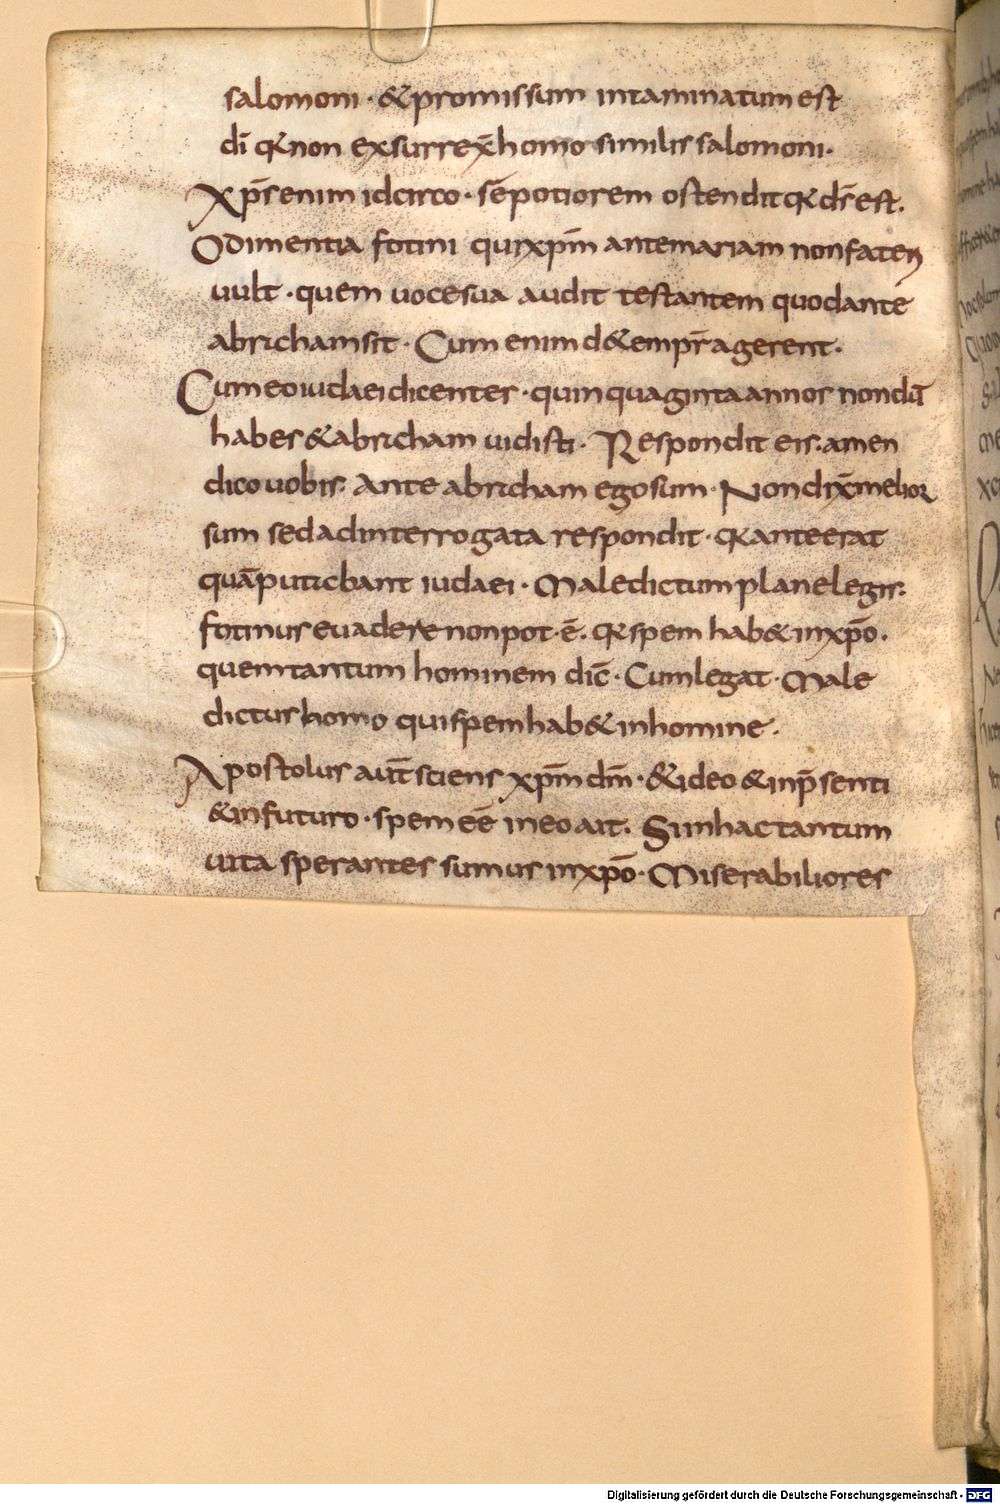 salomoni · &promissum intaminatum est
dī qꝛ non exsurrex̄ homo similis salomoni·
Xp̄s enim idcirco · sēpotiorem ostendit qꝛ ds̄ est.
O dimentia fotini qui xpm̄ ante mariam non fateri
uult · quem uoce sua audit testantem quod ante
abraham sit · Cum enim d& emp̄r agerent.
Cum eo iudaei dicentes · quinquaginta annos nondū
habes & abraham uidisti · Respondit eis. amen
dico uobis. Ante abraham ego sum · Non dix̄ melior
sum sed ad interrogata respondit · qꝛ ante erat
quā putabant iudaei · Maledictum plane legis.
fotinus euadere non pot · ē. qꝛ spem hab& in xpō.
quem tantum hominem dic̄ · Cum legat · Male
dictus homo qui spem hab& in homine ·
Apostolus aut̄ sciens xpm̄ dm̄ · & ideo & in p̄senti
& in futuro · spem eē in eo ait. Si in hac tantum
uita sperantes sumus in xpō · Miserabiliores
Digitalisierung gefördert durch die Deutsche Forschungsgemeinschaft - DFG